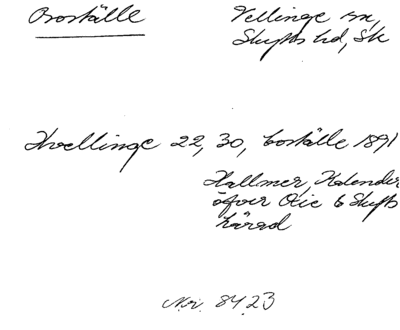 Boställe
Vellinge sn,
Skytts hd, Sk
Hvellinge 22, 30, boställe 1891
Hallmer, Kalender
öfver Oxie & Skytts
härad
Nr. 8423